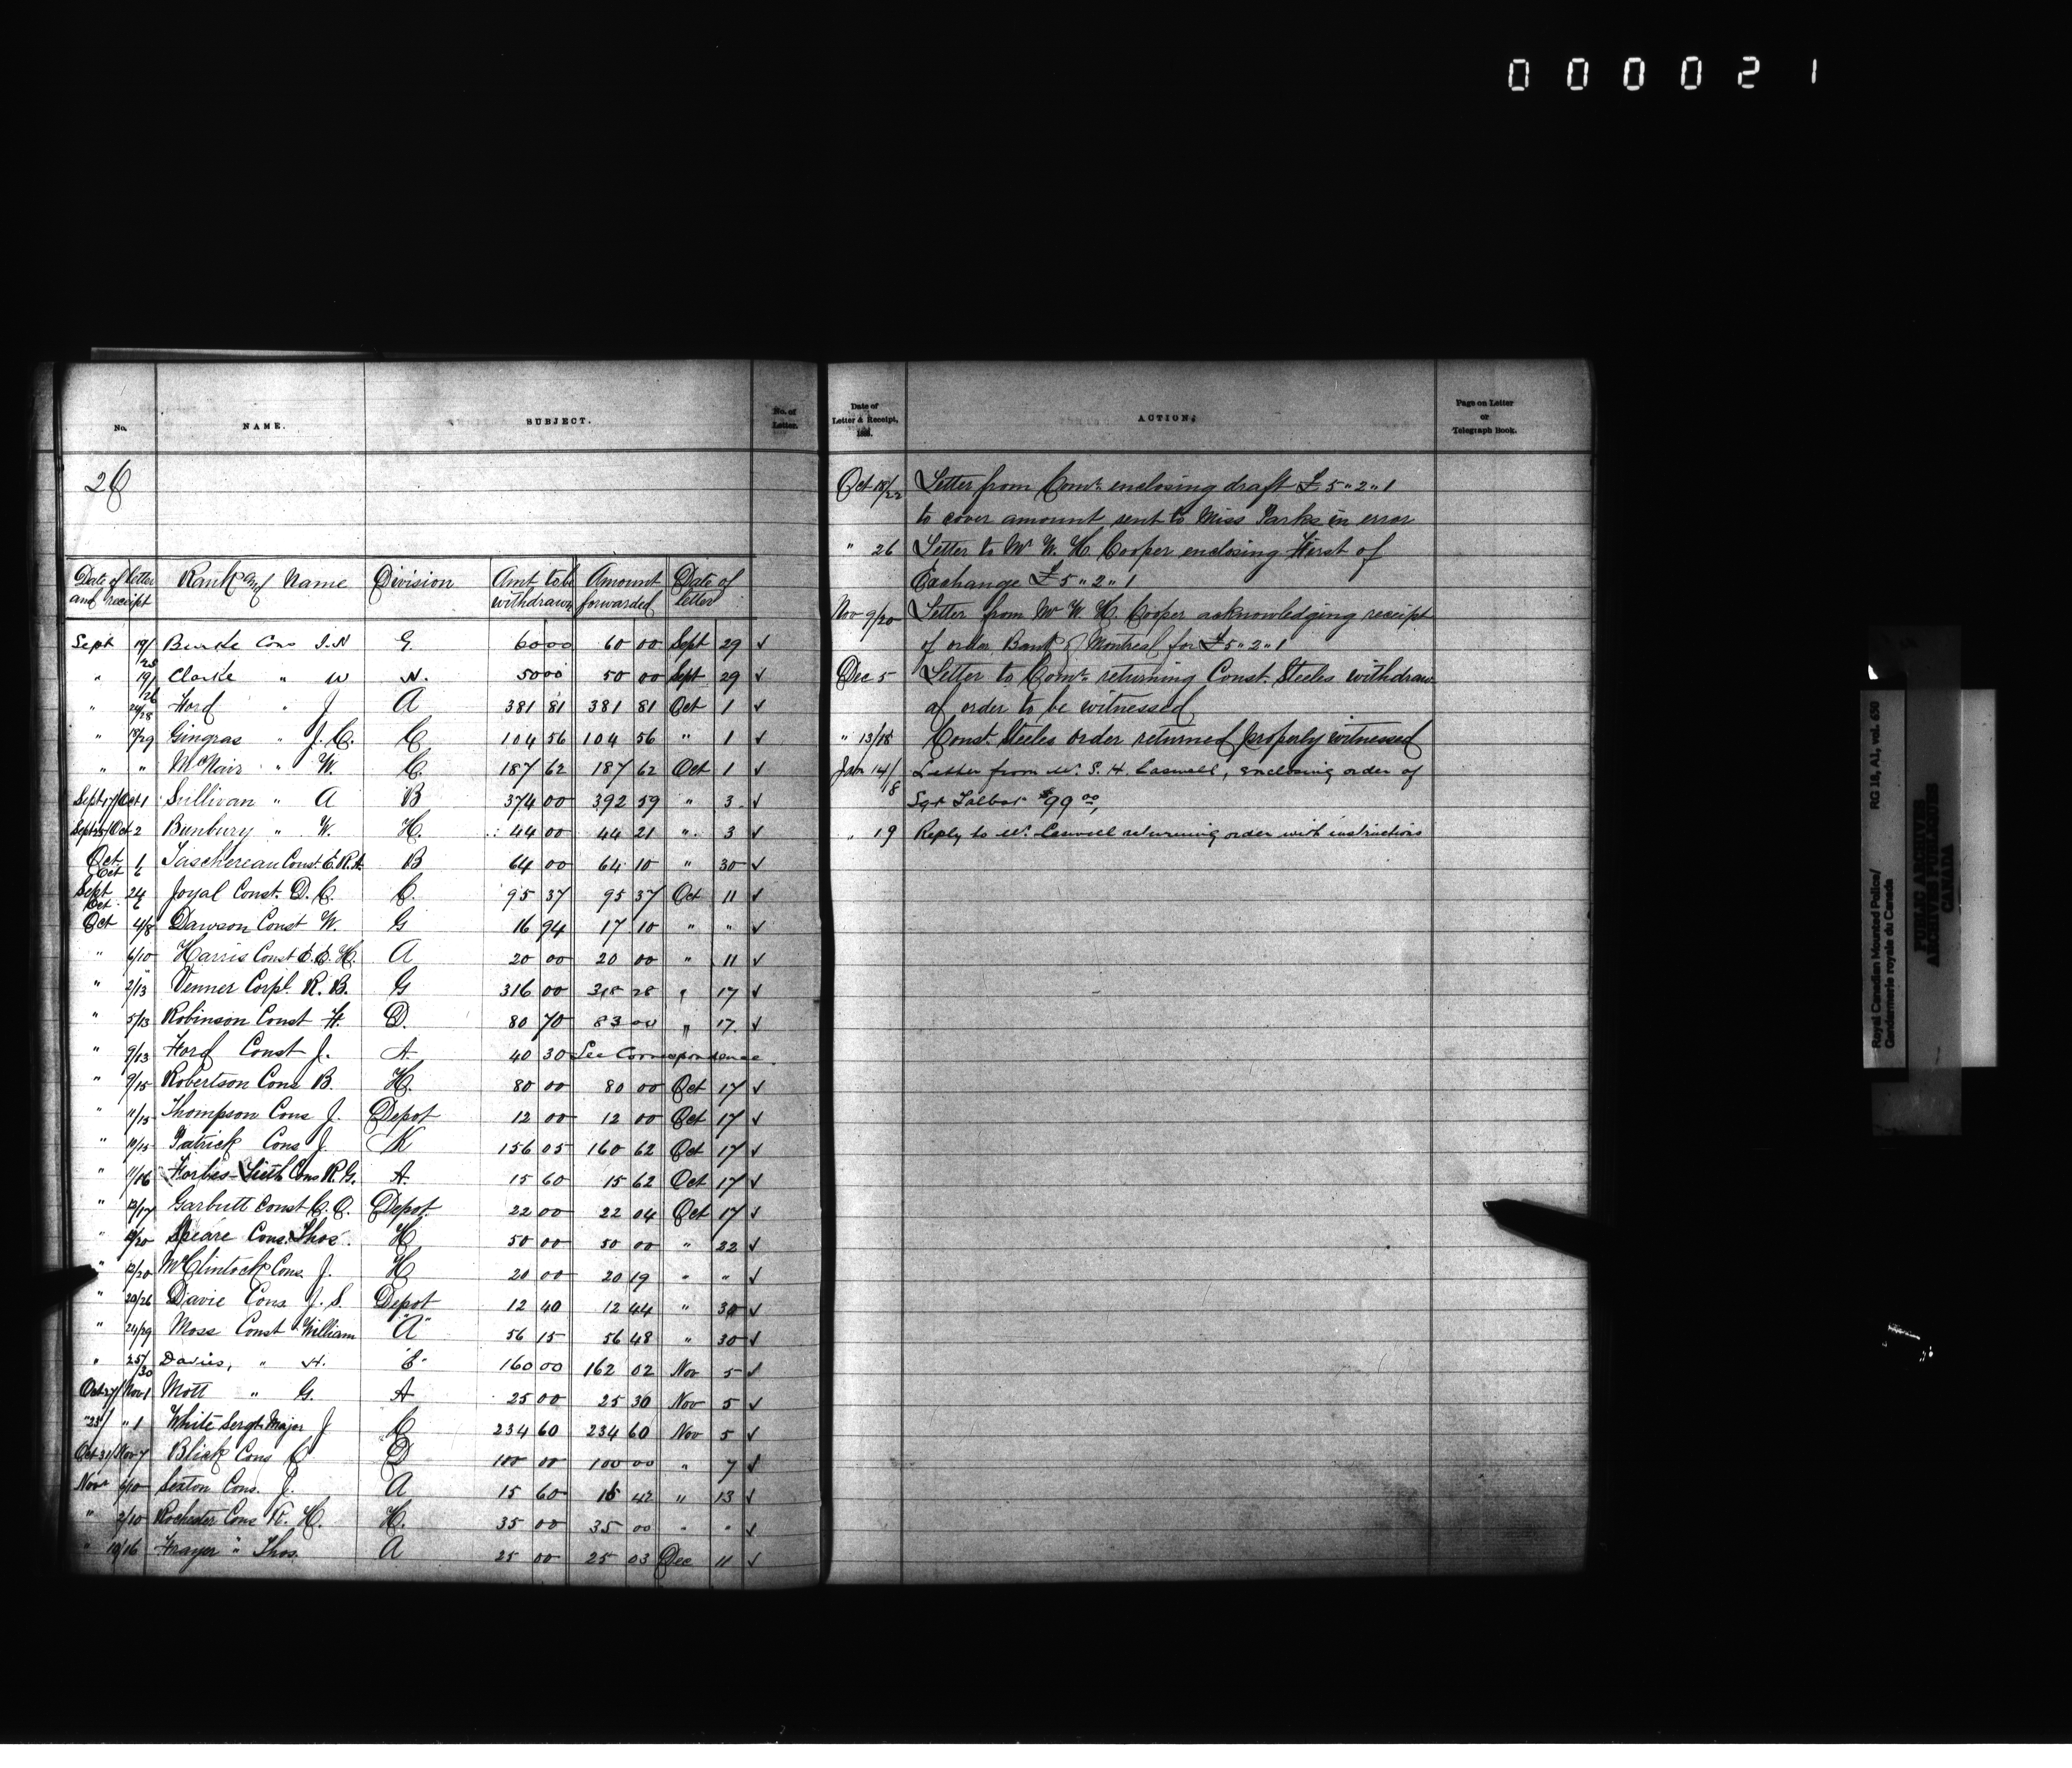 000021
No. NAME. SUBJECT. No. of Letter.
26
Date of letter and receipt Rank and Name Division Amt to be withdrawn Amount forwarded Date of letter
Sept 19/25 Burke Cons J.N G 60 00 60 00 Sept 29 ✓
" 19/26 Clarke " W N. 50 00 50 00 Sept 29 ✓
" 24/28 Ford " J A 381 81 381 81 Oct 1 ✓
" 18/29 Gingras " J.C. C 104 56 104 56 " 1 ✓
" " McNair " W. C. 187 62 187 62 Oct 1 ✓
Sept 17/Oct 1 Sullivan " A B 374 00 392 59 " 3 ✓
Sept 25/Oct 2 Bunbury " W. H. 44 00 44 21 " 3 ✓
Oct 1 Oct 6 Taschereau Const. E.R.A. B 64 00 64 10 " 30 ✓
Sept 24 Oct 6 Joyal Const. D. C. C. 95 37 95 37 Oct 11 ✓
Oct 4/8 Dawson Const W. G 16 94 17 10 " " ✓
" 6/10 Harris Const E.E.H. A 20 00 20 00 " 11 ✓
" 2/13 Venner Corpl. R. B. G 316 00 318 28 " 17 ✓
" 5/13 Robinson Const H. D. 80 70 83 00 " 17. ✓
" 9/13 Ford Const J. A. 40 30 See Correspondence.
" 9/15 Robertson Cons B. H. 80 00 80 00 Oct 17 ✓
" 11/15 Thompson Cons J. Depot 12 00 12 00 Oct 17 ✓
" 10/15 Patrick Cons J. K 156 05 160 62 Oct 17 ✓
" 11/16 Forbes-Leith Cons R.G. A. 15 60 15 62 Oct 17 ✓
" 12/17 Garbutt Const C. C. Depot. 22 00 22 04 Oct 17 ✓
" /20 Speare Cons. Thos. H 50 00 50 00 " 22 ✓
" 12/20 McClintock Cons. J. H 20 00 20 19 " " ✓
" 20/26 Davie Cons J. S. Depot 12 40 12 44 " 30 ✓
" 24/29 Moss Const William "A" 56 15 56 48 " 30 ✓
" 25/30 Davies, " H. "E" 160 00 162 02 Nov 5 ✓
Oct 27/Nov 1 Mott " G. A 25 00 25 30 Nov 5 ✓
"23/ " 1 White Sergt. Major J C 234 60 234 60 Nov 5 ✓
Oct 31/Nov 7 Blick Cons C D 100 00 100 00 " 7 ✓
Nov /10 Sexton Cons. J. A 15 60 15 42 " 13 ✓
" 2/10 Rochester Cons R. H. H. 35 00 35 00 " " ✓
" 10/16 Frayer " Thos. A 25 00 25 03 Dec 11 ✓
Date of Letter & Receipt, 188 . ACTION. Page on Letter or Telegraph Book.
Oct 18/22 Letter from Comr. enclosing draft £5"2"1
to cover amount sent to Miss Parks in error
" 26 Letter to Mr W. H. Cooper enclosing First of
Exchange £5"2"1
Nov 9/20 Letter from Mr W. H. Cooper acknowledging receipt
of order Bank of Montreal for £5"2"1
Dec 5 Letter to Comr. returning Const. Steeles withdraw
al order to be witnessed
" 13/18 Const. Steeles order returned properly witnessed
Jan 14/8 Letter from Mr. S. H. Caswell, enclosing order of
Sgt Talbot $99 00,
" 19 Reply to Mr. Caswell returning order with instructions
Royal Canadian Mounted Police/
Gendarmerie royale du Canada
RG 18, A1, vol. 650
PUBLIC ARCHIVES
ARCHIVES PUBLIQUES
CANADA